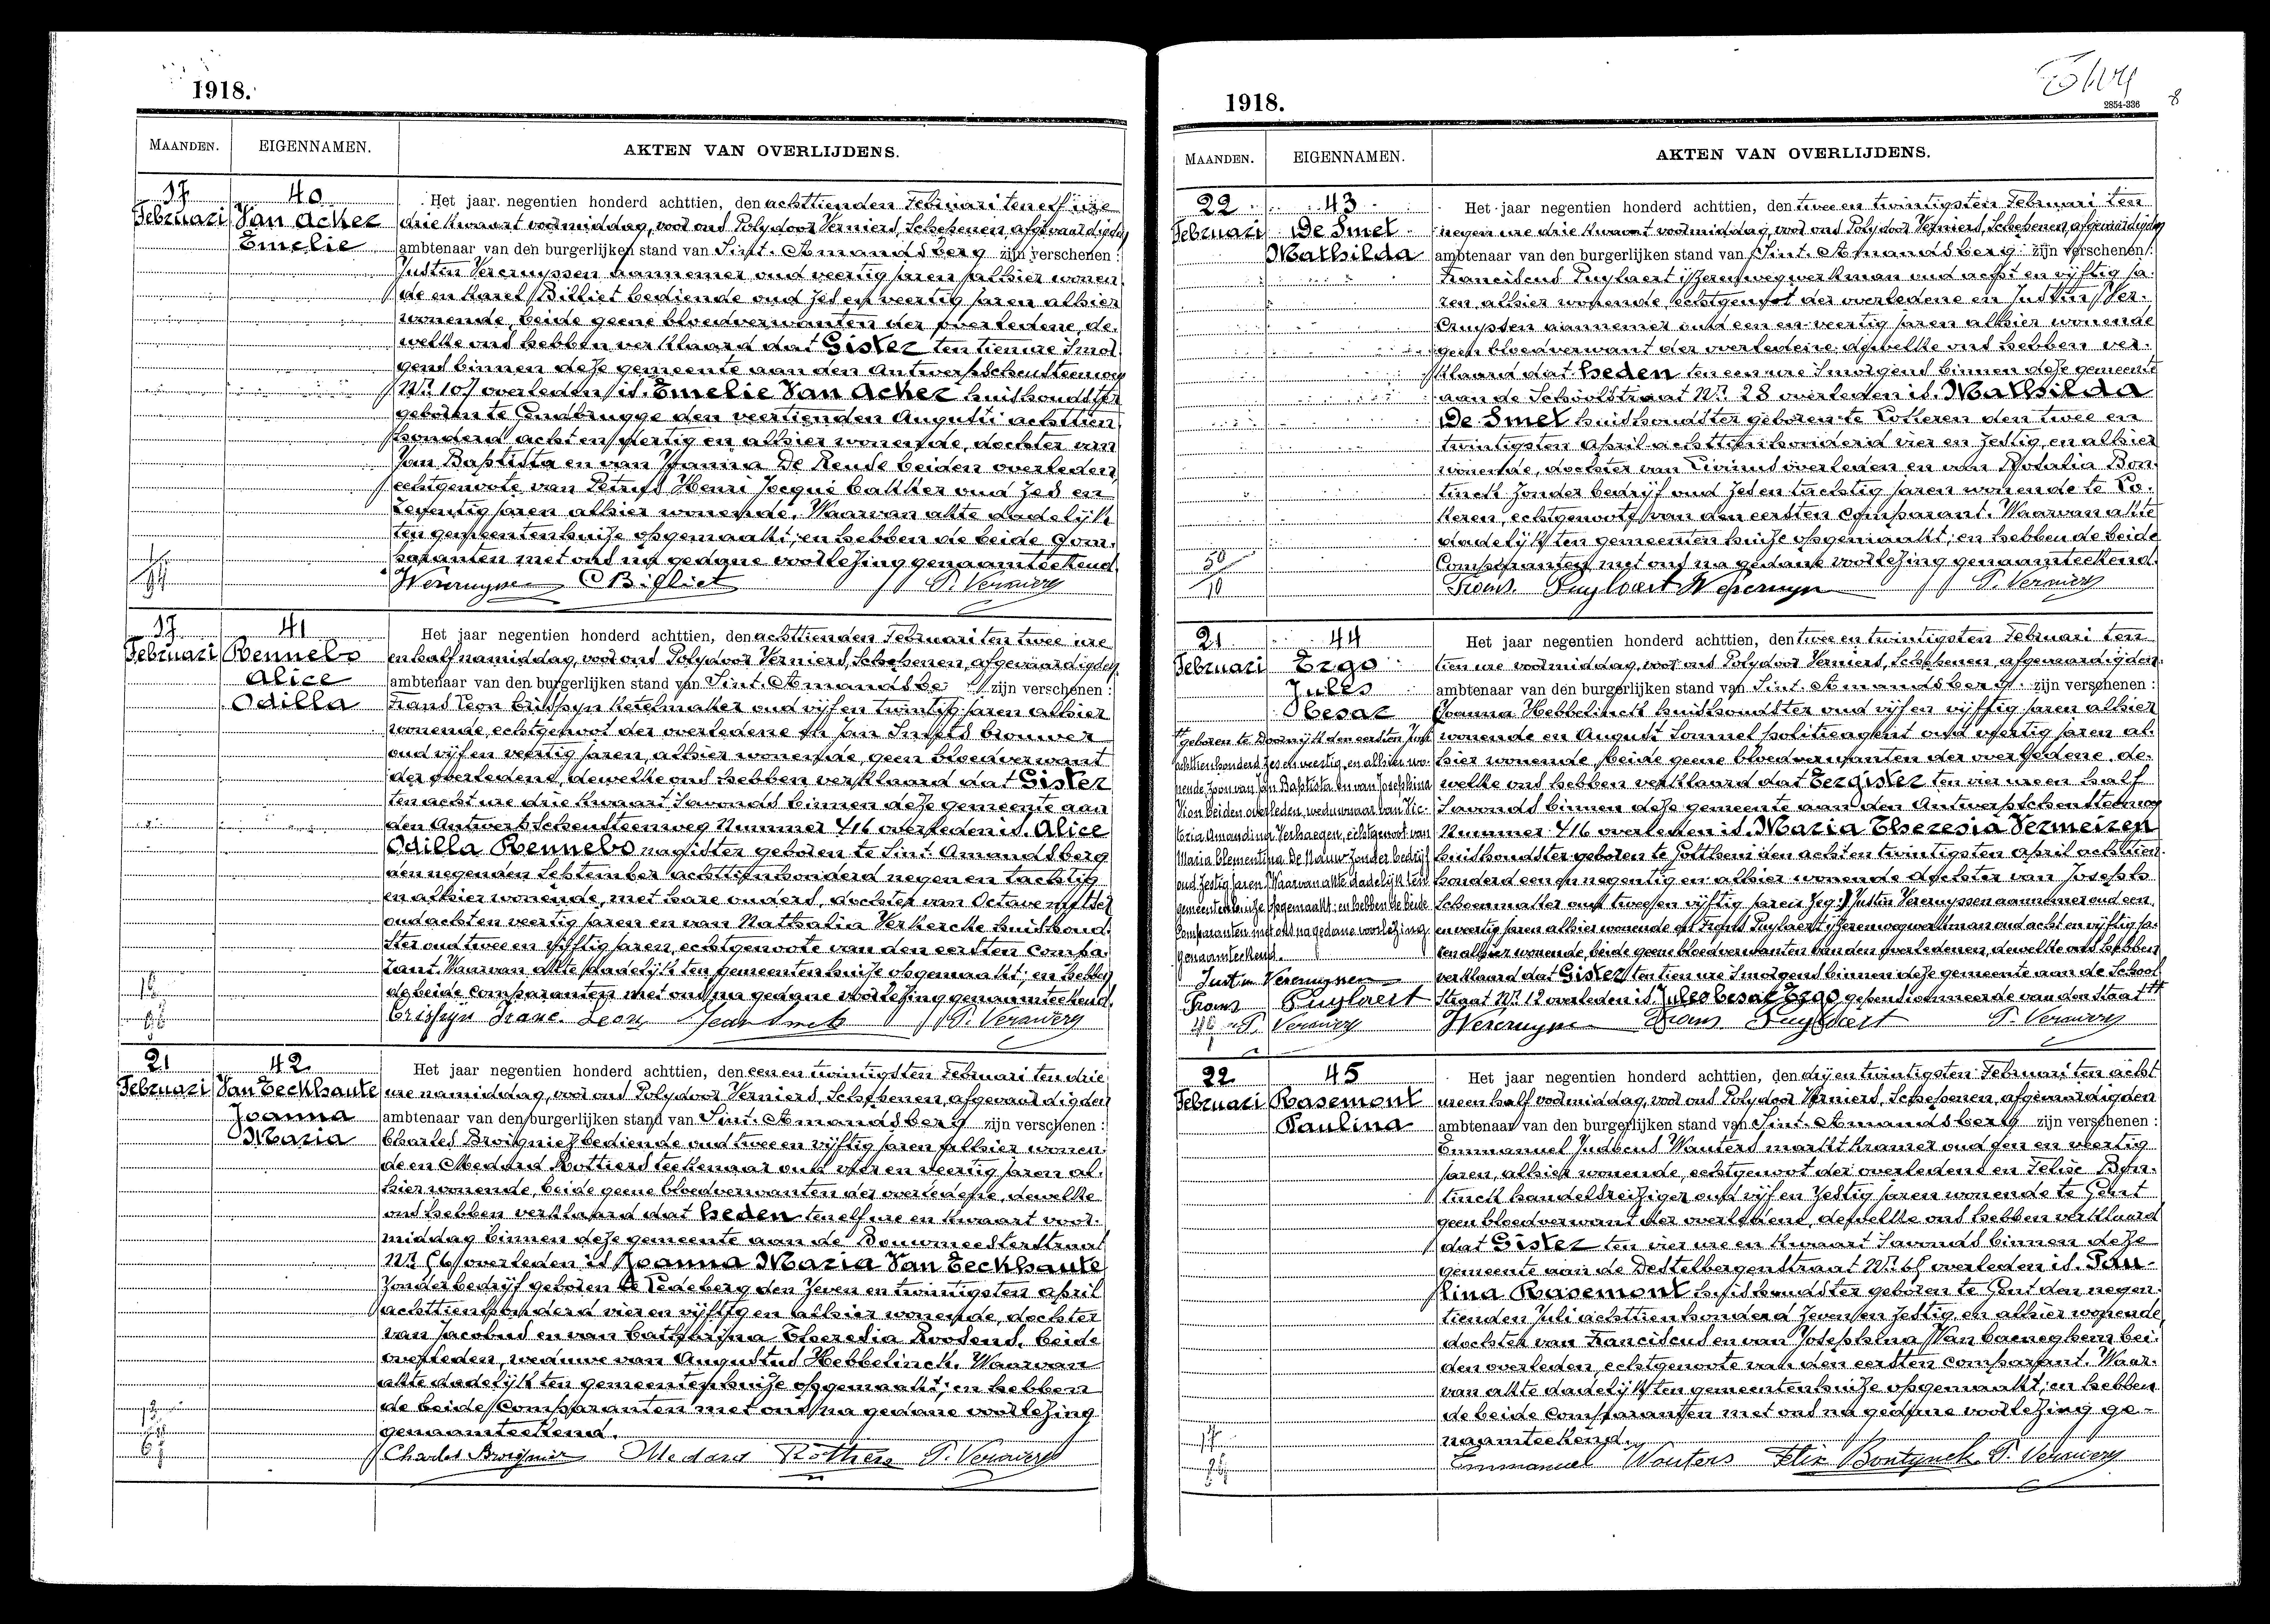 1918.
MAANDEN. EIGENNAMEN. AKTEN VAN OVERLIJDENS.
17 Februari
40
Van Acker
Emelie
Het jaar negentien honderd achttien, den achttienden Februari ten elf ure
drie kwaart voormiddag, voor ons Polydoor Verniers, Schepenen, afgevaardigden
ambtenaar van den burgerlijken stand van Sint-Amandsberg zijn verschenen :
Justin Vercruyssen aannemer oud veertig jaren alhier wonen-
de en Karel Billiet bediende oud zes en veertig jaren alhier
wonende, beide geene bloedverwanten der overledene, de-
welke ons hebben verklaard dat Gister ten tien ure smor-
gens binnen deze gemeente aan den Antwerpschensteenweg
Nr 107 overleden is Emelie Van Acker huishoudster
geboren te Gendbrugge den veertienden Augusti achttien
honderd acht en veertig en alhier wonende, dochter van
Jan Baptista en van Joanna De Reuse beiden overleden,
echtgenoote van Petrus Henri Jocqué bakker oud zes en
zeventig jaren alhier wonende. Waarvan akte dadelijk
ten gemeentenhuize opgemaakt; en hebben de beide Com-
paranten met ons na gedane voorlezing genaamteekend.
JVercruyssen CBilliet P. Verniers
17 Februari
41
Rennebo
Alice
Odilla
Het jaar negentien honderd achttien, den achttienden Februari ten twee ure
en half namiddag, voor ons Polydoor Verniers, Schepenen, afgevaardigden
ambtenaar van den burgerlijken stand van Sint-Amandsbe zijn verschenen :
Frans Leon Crispyn ketelmaker oud vijf en twintig jaren alhier
wonende, echtgenoot der overledene en Jan Smets brouwer
oud vijf en veertig jaren, alhier wonende, geen bloedverwant
der overledene, dewelke ons hebben verklaard dat Gister
ten acht ure drie kwaart savonds binnen deze gemeente aan
den Antwerpschensteenweg Nummer 416 overleden is Alice
Odilla Rennebo nagister geboren te Sint-Amandsberg
den negenden September achttienhonderd negen en tachtig
en alhier wonende, met hare ouders, dochter van Octave
oud acht en veertig jaren en van Nathalia Verkercke huishoud-
ster oud twee en vijftig jaren, echtgenoote van den eersten Compa-
rant. Waarvan akte dadelijk ten gemeentenhuize opgemaakt; en hebben
de beide Comparanten met ons na gedane voorlezing genaamteekend.
Crispyn Franc. Leon Jean Smets P. Verniers
21 Februari
42
Van Eeckhaute
Joanna
Maria
Het jaar negentien honderd achttien, den een en twintigsten Februari ten drie
ure namiddag, voor ons Polydoor Verniers, Schepenen, afgevaardigden
ambtenaar van den burgerlijken stand van Sint-Amandsberg zijn verschenen :
Charles Broignier bediende oud twee en vijftig jaren alhier wonen-
de en Medard Rottiers teekenaar oud vier en veertig jaren al-
hier wonende, beide geene bloedverwanten der overledene, dewelke
ons hebben verklaard dat heden ten elf ure en kwaart voor-
middag binnen deze gemeente aan de Bouwmeesterstraat
Nr 56 overleden is Joanna Maria Van Eeckhaute
zonder bedrijf geboren te Ledeberg den zeven en twintigsten April
achttienhonderd vier en vijftig en alhier wonende, dochter
van Jacobus en van Catharina Theresia Roosens, beide
overleden, weduwe van Augustus Hebbelinck. Waarvan
akte dadelijk ten gemeentenhuize opgemaakt; en hebben
de beide Comparanten met ons na gedane voorlezing
genaamteekend.
Charles Broignier Medard Rottiers P. Verniers
1918.
2854-336
8
MAANDEN. EIGENNAMEN. AKTEN VAN OVERLIJDENS.
22 Februari
43
De Smet
Mathilda
Het jaar negentien honderd achttien, den twee en twintigsten Februari ten
negen ure drie kwaart voormiddag, voor ons Polydoor Verniers, Schepenen, afgevaardigden
ambtenaar van den burgerlijken stand van Sint-Amandsberg zijn verschenen :
Franciscus Puylaert ijzerenwegwerkman oud acht en vijftig ja-
ren, alhier wonende, echtgenoot der overledene en Justin Ver-
cruyssen aannemer oud een en veertig jaren alhier wonende
geen bloedverwant der overledene, dewelke ons hebben ver-
klaard dat heden ten een ure smorgens binnen deze gemeente
aan de Schoolstraat Nr 28 overleden is Mathilda
De Smet huishoudster geboren te Lokeren den twee en
twintigsten April achttienhonderd vier en zestig, en alhier
wonende, dochter van Livinus overleden en van Rosalia Bon-
tinck zonder bedrijf oud zes en tachtig jaren wonende te Lo-
keren, echtgenoote van den eersten Comparant. Waarvan akte
dadelijk ten gemeentenhuize opgemaakt; en hebben de beide
Comparanten met ons na gedane voorlezing genaamteekend.
Frans. Puylaert JVercruyssen P. Verniers
21 Februari
44
Ergo
Jules
Cesar
Het jaar negentien honderd achttien, den twee en twintigsten Februari ten
tien ure voormiddag, voor ons Polydoor Verniers, Schepenen, afgevaardigden
ambtenaar van den burgerlijken stand van Sint-Amandsberg zijn verschenen :
Joanna Hebbelinck huishoudster oud vijf en vijftig jaren alhier
wonende en August Sommel politieagent oud veertig jaren al-
hier wonende, beide geene bloedverwanten der overledene, de-
welke ons hebben verklaard dat Eergister ten vier ure en half
savonds binnen deze gemeente aan den Antwerpschensteenweg
Nummer 416 overleden is Maria Theresia Vermeiren
huishoudster geboren te Lotthem den acht en twintigsten April achttien-
honderd een en negentig en alhier wonende dochter van Joseph
Schoenmaker oud twee en vijftig jaren zeg: Justin Vercruyssen aannemer oud een
en veertig jaren alhier wonende en Frans Puylaert ijzerenwegwerkman oud acht en vijftig ja-
ren alhier wonende, beide geene bloedverwanten van den overledenen, dewelke ons hebben
verklaard dat Gister ten tien ure smorgens binnen deze gemeente aan de School-
straat Nr 12 overleden is Jules Cesar Ergo gepensionneerde van den Staat
geboren te Doornijk den eersten Juli
achttienhonderd zes en veertig, en alhier wo-
nende, zoon van Jan Baptista en van Josephina
Vion beiden overleden, weduwnaar van Vic-
toria Amandina Verhaegen, echtgenoot van
Maria Clementina De Nauw zonder bedrijf
oud zestig jaren. Waarvan akte dadelijk ten
gemeentenhuize opgemaakt; en hebben de beide
Comparanten met ons na gedane voorlezing
genaamteekend.
Justin Vercruyssen
Frans Puylaert
P. Verniers
JVercruyssen Frans Puylaert P. Verniers
22 Februari
45
Rasemont
Paulina
Het jaar negentien honderd achttien, den drij en twintigsten Februari ten acht
ure en half voormiddag, voor ons Polydoor Verniers, Schepenen, afgevaardigden
ambtenaar van den burgerlijken stand van Sint-Amandsberg zijn verschenen :
Emmanuel Judocus Wauters marktkramer oud een en veertig
jaren, alhier wonende, echtgenoot der overledene en Felise Bon-
tinck handelsreiziger oud vijf en zestig jaren wonende te Gent
geen bloedverwant der overledene, dewelke ons hebben verklaard
dat Gister ten vier ure en kwaart savonds binnen deze
gemeente aan de Destelbergenstraat Nr 65 overleden is Pau-
lina Rasemont huishoudster geboren te Gent den negen-
tienden Juli achttienhonderd zeven en zestig, en alhier wonende
dochter van Franciscus en van Josephina Van Caeneghem bei-
den overleden, echtgenoote van den eersten Comparant. Waar-
van akte dadelijk ten gemeentenhuize opgemaakt; en hebben
de beide Comparanten met ons na gedane voorlezing ge-
naamteekend.
Emmanuel Wauters Felix Bontynck P. Verniers